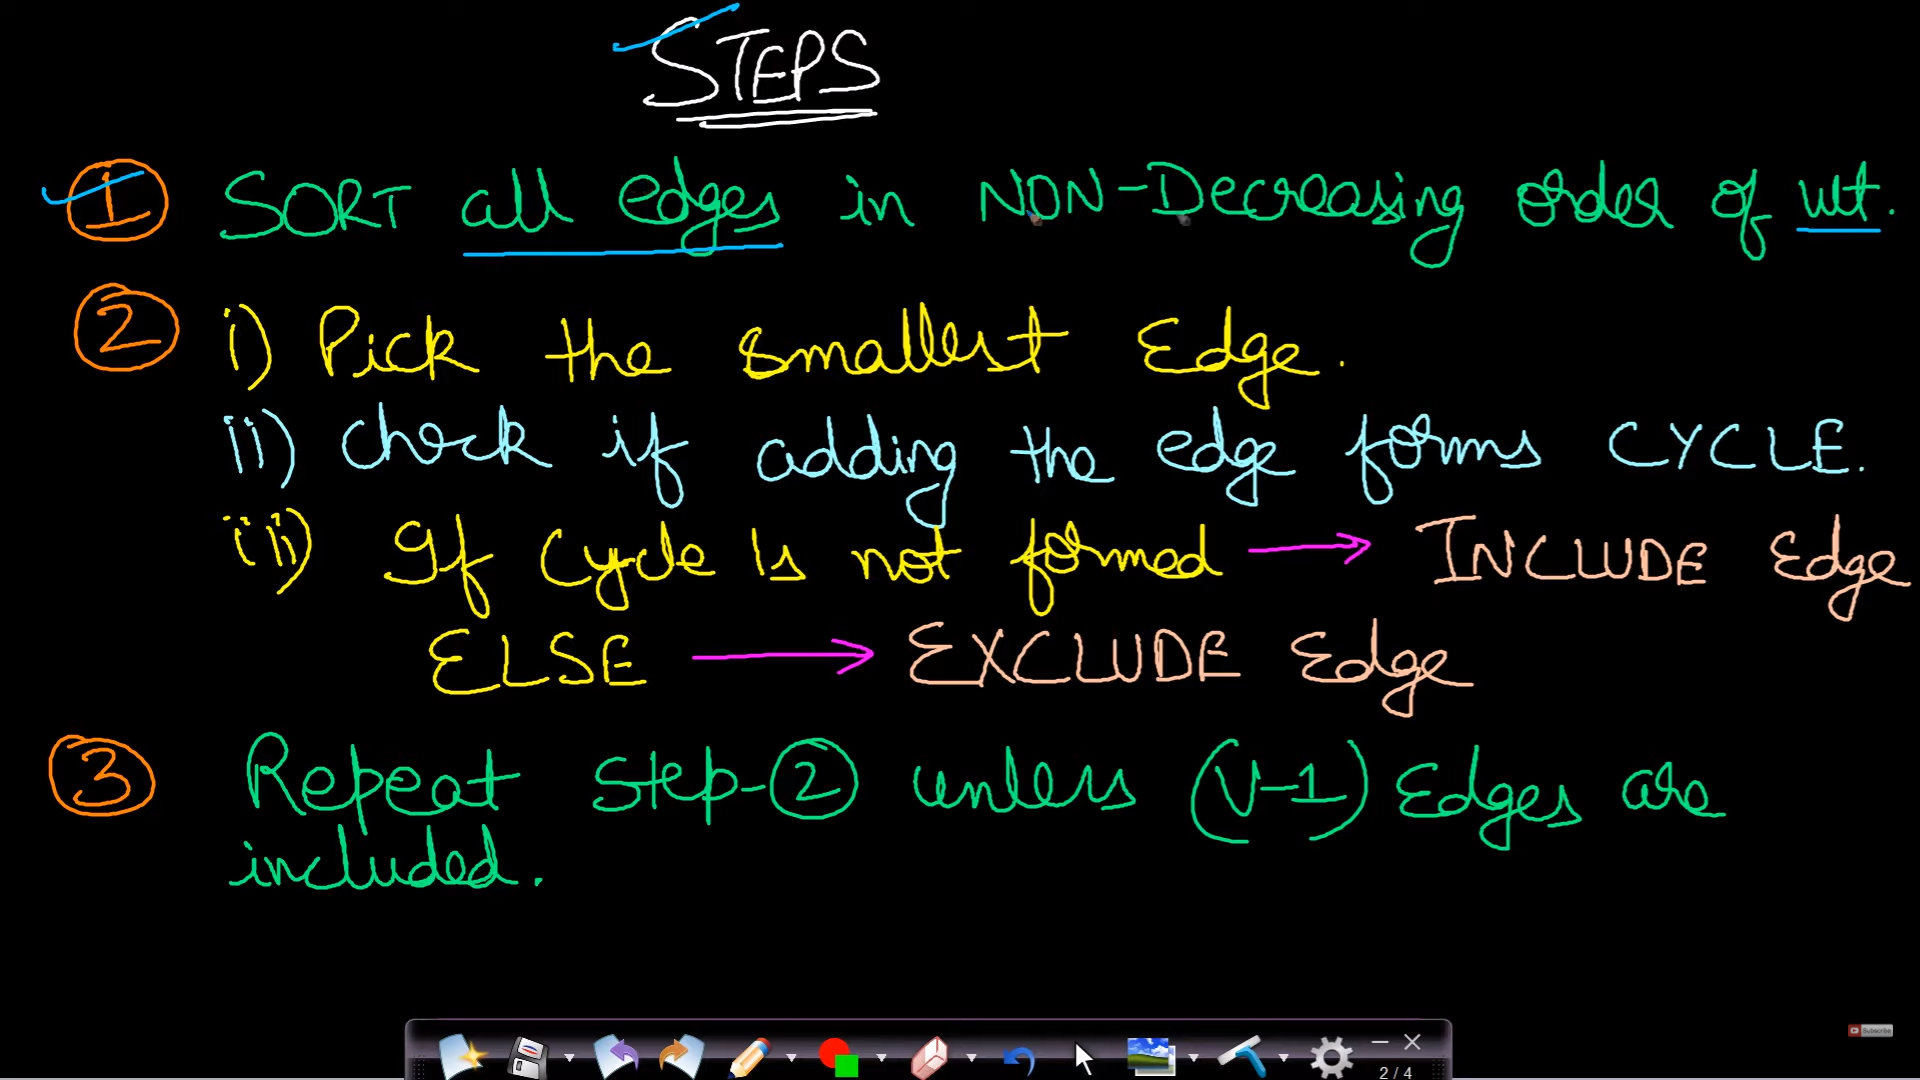 STEPS
1 SORT all edges in NON-Decreasing order of wt.
2 i) Pick the smallest Edge.
ii) check if adding the edge forms CYCLE.
iii) If Cycle Is not formed → INCLUDE Edge
ELSE → EXCLUDE Edge
3 Repeat Step-2 unless (V-1) Edges are
included.
Subscribe
2 / 4